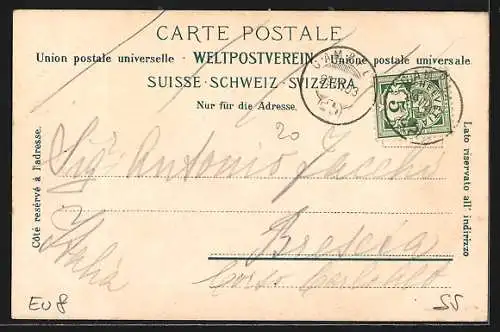 CARTE POSTALE
Union postale universelle · WELTPOSTVEREIN · Unione postale universale
SUISSE · SCHWEIZ · SVIZZERA
Nur für die Adresse.
20
5
HELVETIA
Côté resérvé à l'adresse.
Lato riservato all' indirizzo
Sig. Antonio
Brescia
Italia
Corso
EU 8